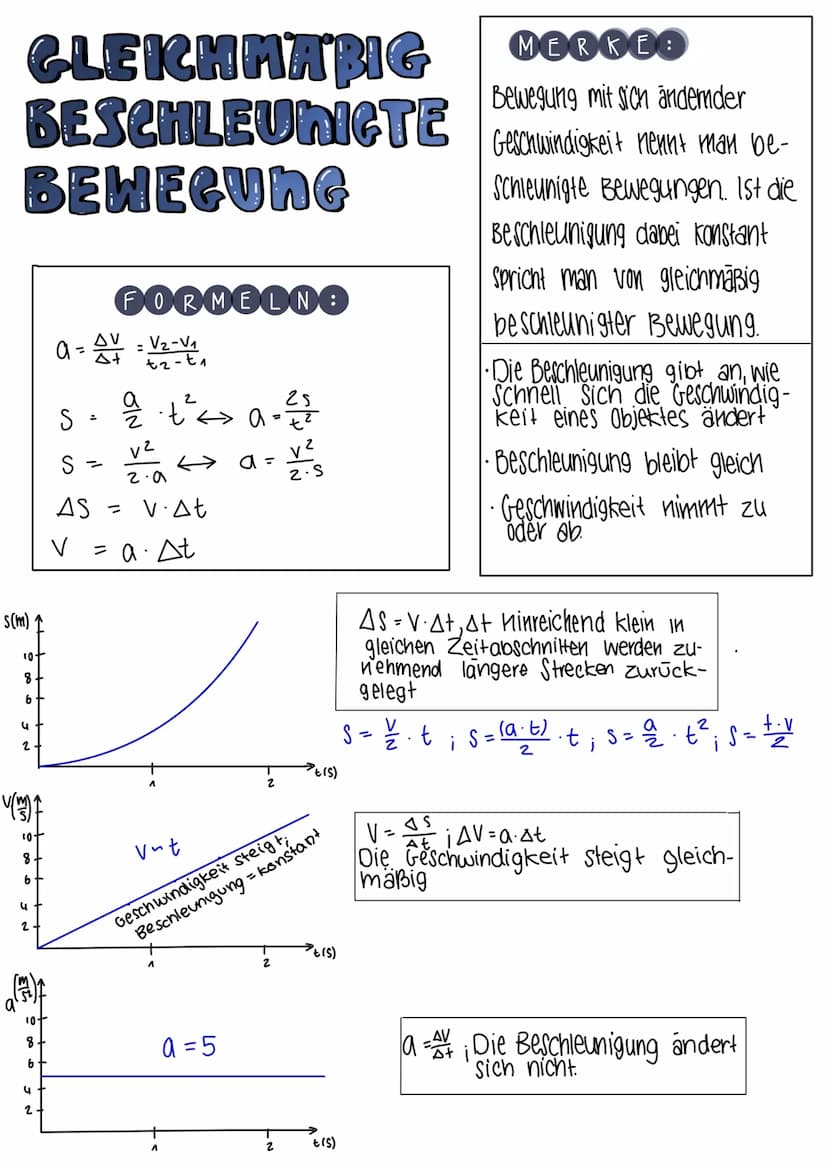 GLEICHMÄßIG
BESCHLEUNIGTE
BEWEGUNG
FORMELN:
a = Δv/Δt = v₂-v₁/t₂-t₁
s = a/2 · t² ↔ a = 2s/t²
s = v²/2·a ↔ a = v²/2·s
Δs = v·Δt
v = a·Δt
MERKE:
Bewegung mit sich ändernder
Geschwindigkeit nennt man be-
schleunigte Bewegungen. Ist die
Beschleunigung dabei konstant
spricht man von gleichmäßig
beschleunigter Bewegung.
·Die Beschleunigung gibt an, wie
schnell sich die Geschwindig-
keit eines Objektes ändert
·Beschleunigung bleibt gleich
·Geschwindigkeit nimmt zu
oder ab.
s(m)
10
8
6
4
2
1
2
t(s)
Δs = v·Δt, Δt hinreichend klein in
gleichen Zeitabschnitten werden zu-
nehmend längere Strecken zurück-
gelegt
s = v/2 · t ; s = (a·t)/2 · t ; s = a/2 · t² ; s = t·v/2
v(m/s)
10
8
6
4
2
v~t
Geschwindigkeit steigt;
Beschleunigung = konstant
1
2
t(s)
v = Δs/Δt ; Δv = a·Δt
Die Geschwindigkeit steigt gleich-
mäßig
a(m/s²)
10
8
6
4
2
a = 5
1
2
t(s)
a = Δv/Δt ; Die Beschleunigung ändert
sich nicht.